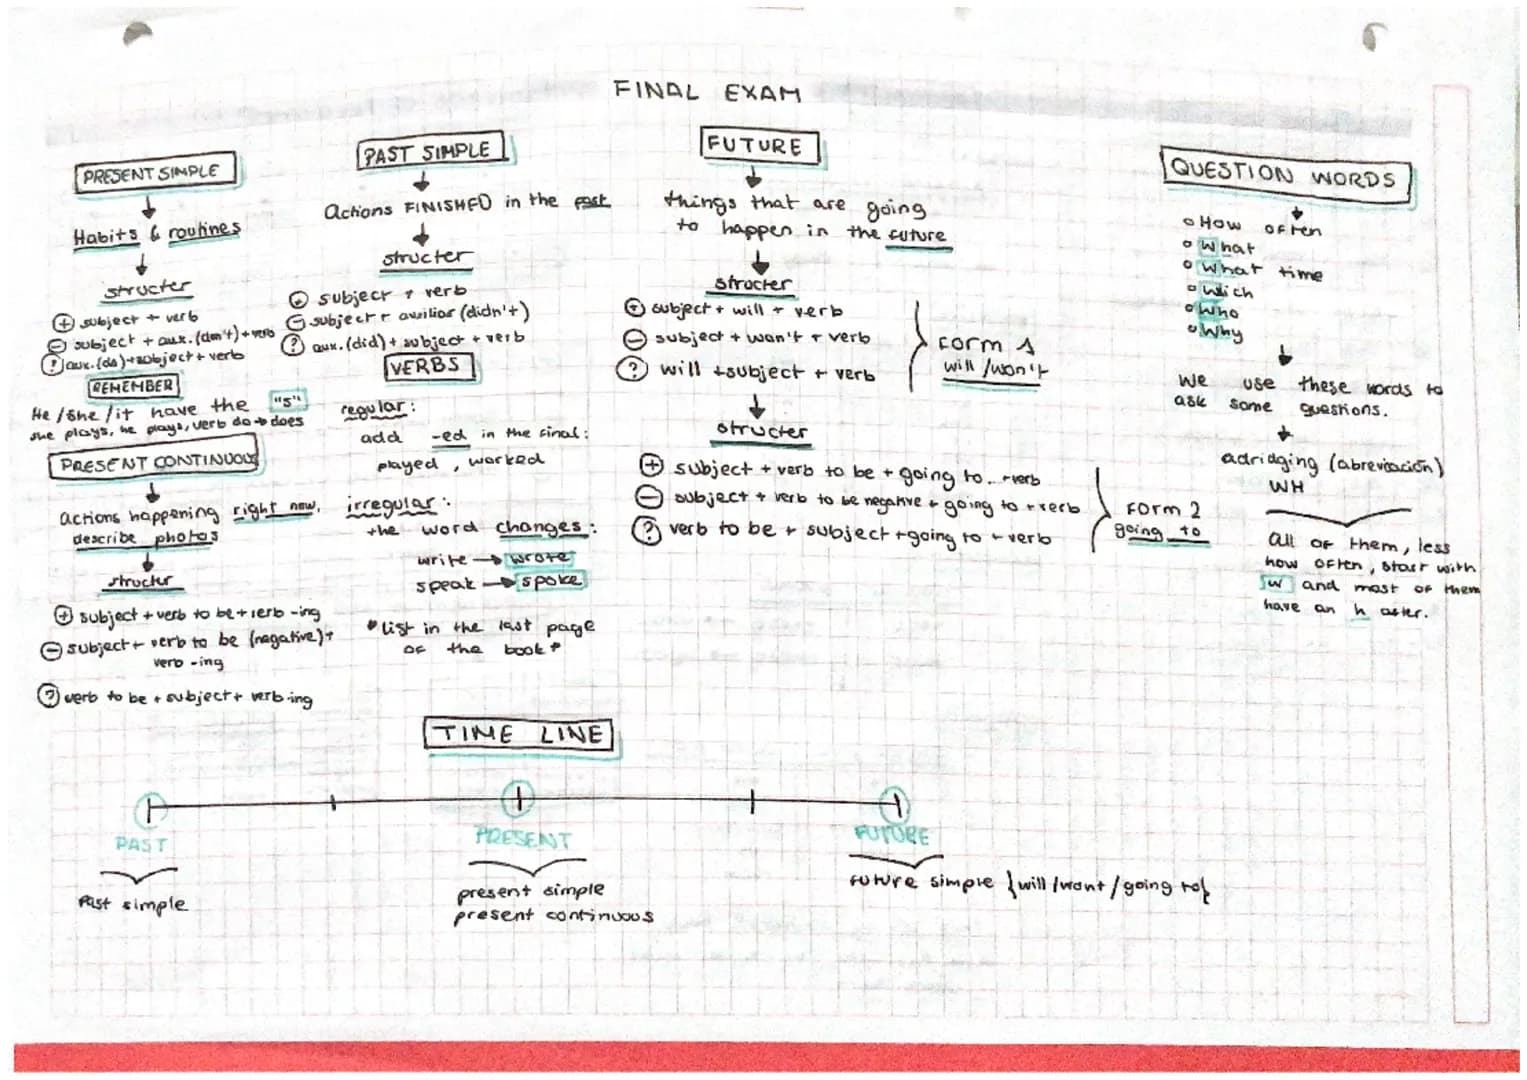 FINAL EXAM
PRESENT SIMPLE
Habits & routines
structer
+ subject + verb
- subject + aux. (don't) + verb
? aux. (do) + subject + verb
REMEMBER
He / she / it have the "s"
she plays, he plays, verb do → does
PRESENT CONTINUOUS
actions happening right now.
describe photos
structer
+ subject + verb to be + verb -ing
- subject + verb to be (negative) +
verb -ing
? verb to be + subject + verb-ing
PAST SIMPLE
Actions FINISHED in the past
structer
+ subject + verb
- subject + auxiliar (didn't)
? aux. (did) + subject + verb
VERBS
regular:
add -ed in the final:
played, worked
irregular:
the word changes:
write → wrote
speak → spoke
*list in the last page
of the book*
FUTURE
things that are going
to happen in the future
structer
+ subject + will + verb
- subject + won't + verb
? will + subject + verb
form 1
will / won't
structer
+ subject + verb to be + going to + verb
- subject + verb to be negative + going to + verb
? verb to be + subject + going to + verb
form 2
going to
QUESTION WORDS
How often
What
What time
Wich
Who
Why
We use these words to
ask some questions.
adridging (abreviación)
WH
all of them, less
how often, start with
w and most of them
have an h after.
TIME LINE
PAST
Past simple
PRESENT
present simple
present continuous
FUTURE
future simple {will / wont / going to}